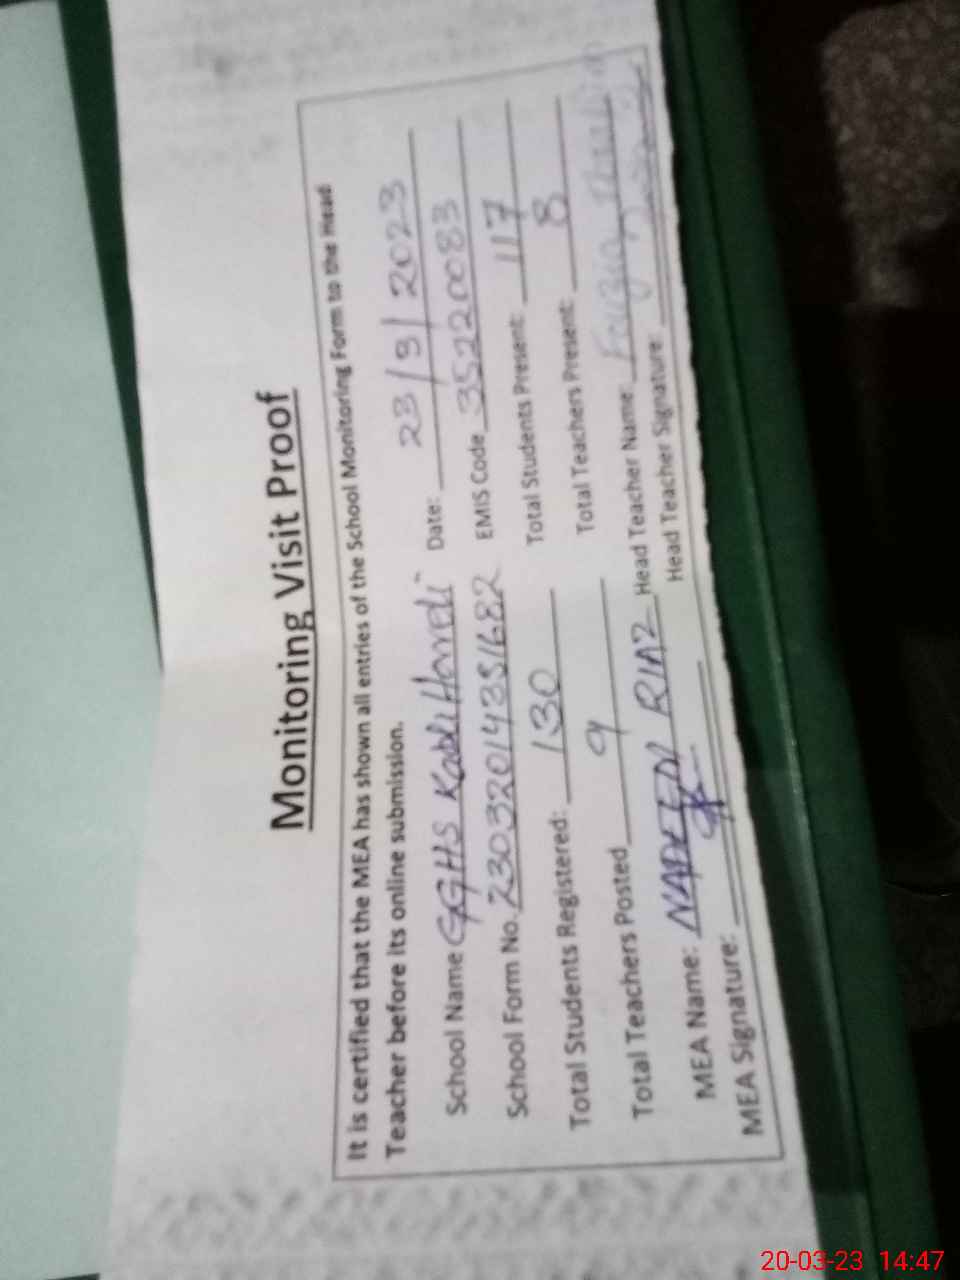 Monitoring Visit Proof
It is certified that the MEA has shown all entries of the School Monitoring Form to the Head
Teacher before its online submission.
School Name GGHS Date: 2023
School Form No. 230320143S1682 EMIS Code 35220083
Total Students Registered: 130 Total Students Present: 117
Total Teachers Posted 9 Total Teachers Present: 8
MEA Name: NADEEM RIAZ Head Teacher Name:
MEA Signature: Head Teacher Signature:
20-03-23 14:47